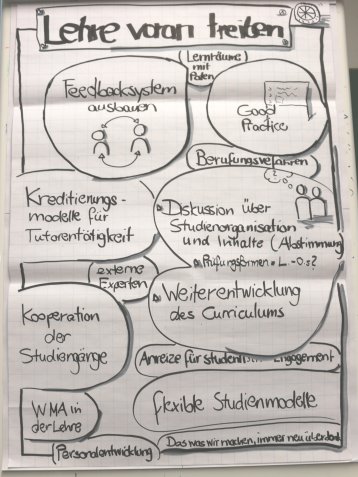 Lehre voran treiben
(Lernräume)
mit
Paten
Feedbacksystem
ausbauen
Good
Practice
Berufungsverfahren
?
Kreditierungs-
modelle für
Tutorentätigkeit
Diskussion über
Studienorganisation
und Inhalte (Abstimmung)
Prüfungsformen
externe
Experten
Weiterentwicklung
des Curriculums
Kooperation
der
Studiengänge
Anreize für studentisches Engagement
flexible Studienmodelle
WMA in
der Lehre
Das was wir machen, immer neu überdenken
Personalentwicklung